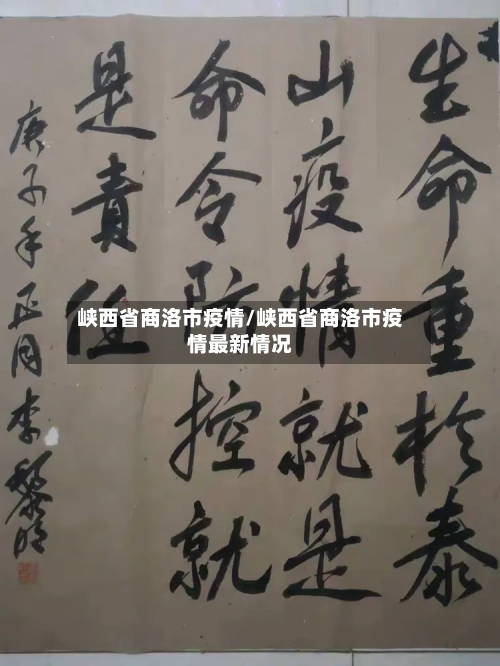 生命重於泰
山疫情就是
命令防控就
是責任
庚子年正月李黎明
峡西省商洛市疫情/峡西省商洛市疫
情最新情况